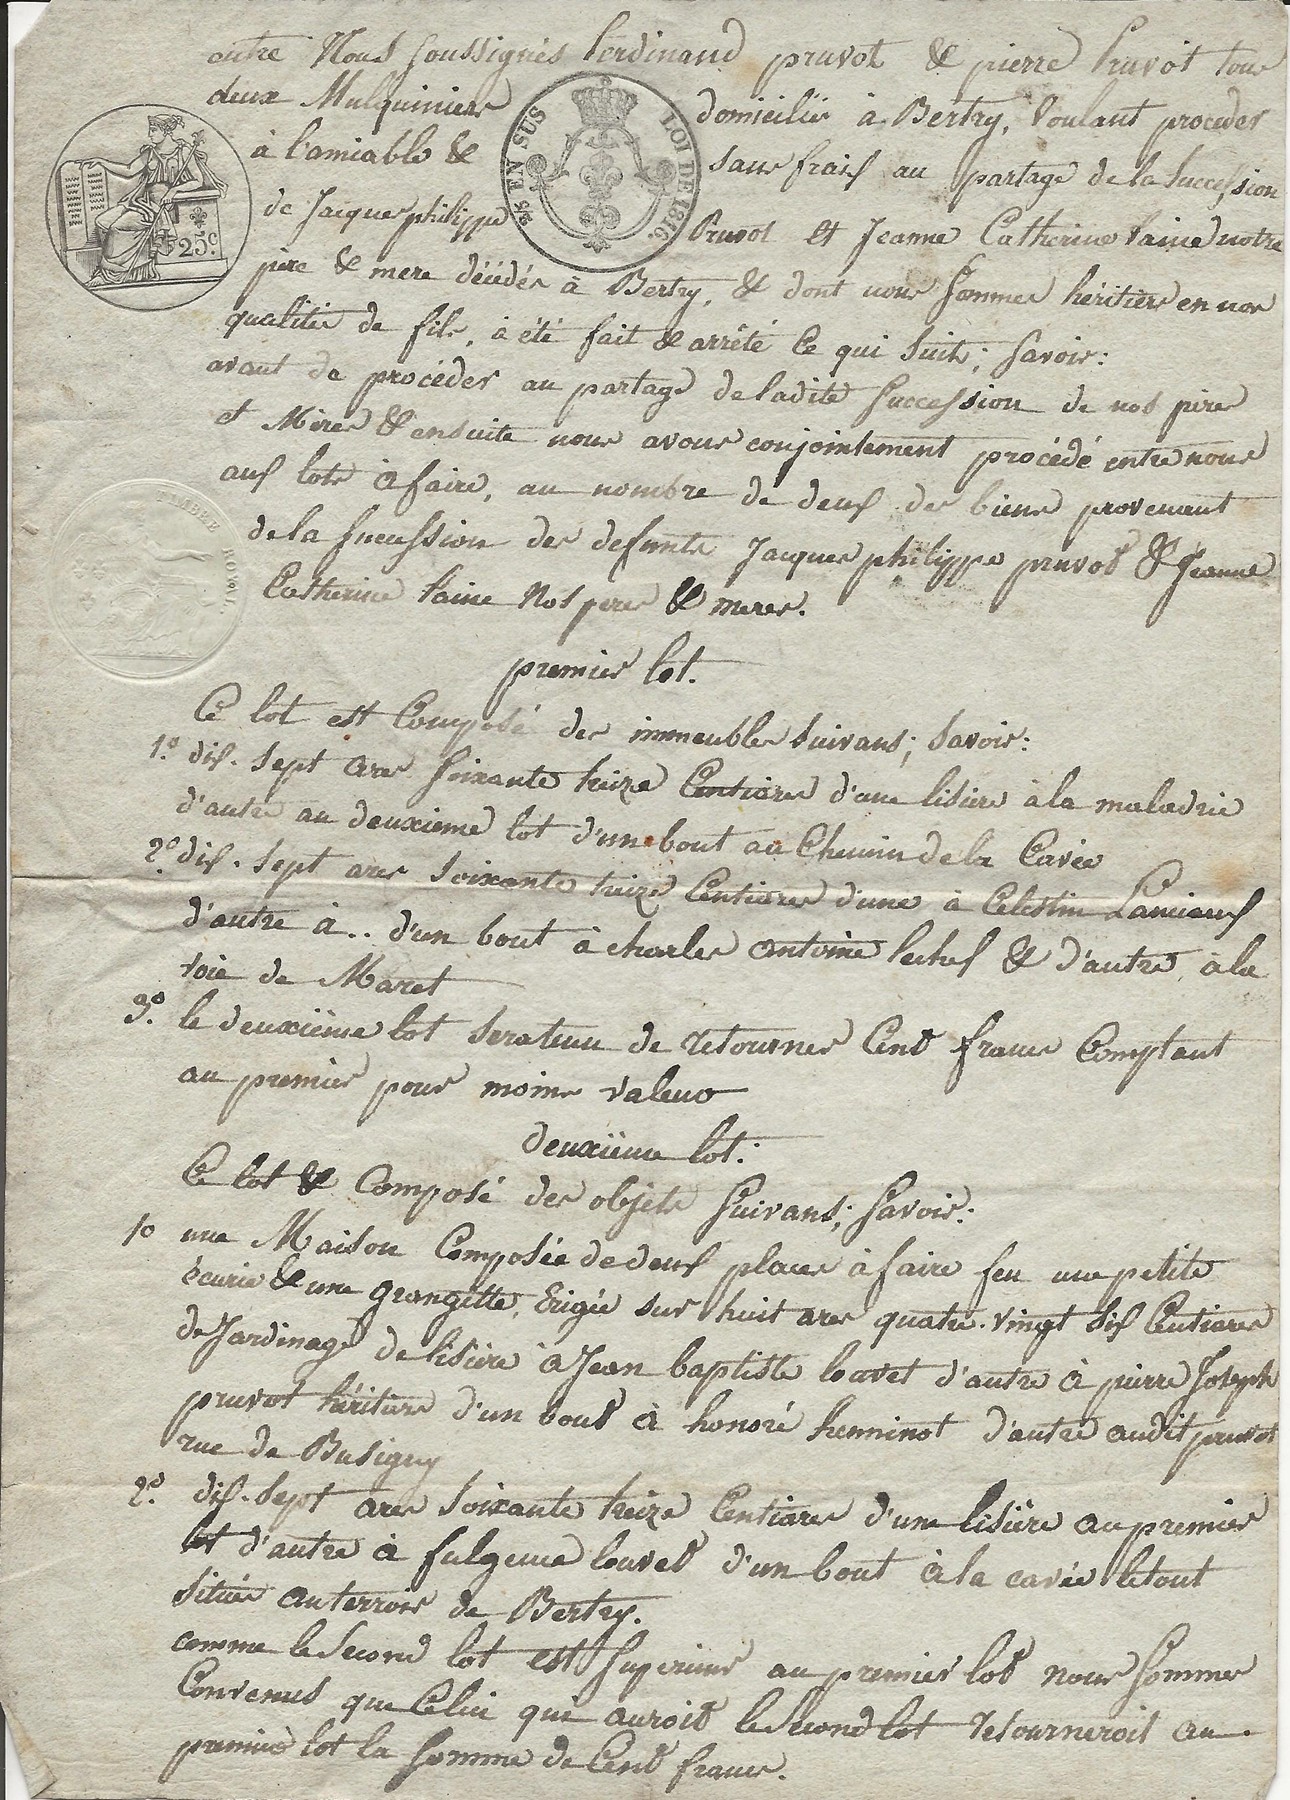 entre Nous soussignés ferdinand pruvot & pierre Pruvot tous
deux Mulquiniers domiciliés à Bertry, voulant procéder
à l'amiable & sans frais au partage de la succession
de Jacque philippe Pruvot et Jeanne Catherine taine notre
père & mere décédés à Bertry, & dont nous sommes héritiers en nos
qualités de fils, à été fait & arrêté ce qui suit; savoir:
avant de procéder au partage de ladite succession de nos pères
et Mères & ensuite nous avons conjointement procédé entre nous
aux lots à faire, au nombre de deux des biens provenant
de la succession des defunts Jacques philippe pruvot & Jeanne
Catherine taine Nos peres & meres.
premier lot.
Ce lot est Composé des immeubles suivans; savoir:
1.º dix-sept ares soixante treize Centiares d'une lisière à la maladrie
d'autre au deuxieme lot d'un bout au Chemin de la Cavée
2.º dix-sept ares soixante treize Centiares d'une à Celestin Lamieux
d'autre à .. d'un bout à charles antoine lechef & d'autre à la
voie de Maret
3.º le deuxième lot sera tenu de retourner Cent francs Comptant
au premier pour moins valeur
deuxième lot:
Ce lot & Composé des objets suivans; savoir:
1º une Maison Composée de deux places à faire feu une petite
écurie & une grangette, érigée sur huit ares quatre-vingt six Centiares
de Jardinage de lisière à Jean baptiste louvet d'autre à pierre Joseph
pruvot héritiers d'un bout à honoré henninot d'autre audit pruvot
rue de Busigny
2.º dix-sept ares soixante treize Centiares d'une lisière au premier
lot d'autre à fulgence louvet d'un bout à la cavée le tout
situés au terroir de Bertry.
comme le Second lot est supérieur au premier lot nous sommes
Convenus que Celui qui auroit le Second lot retourneroit au
premier lot la somme de Cent francs.
25 c.
EN SUS
LOI DE 1816.
TIMBRE ROYAL